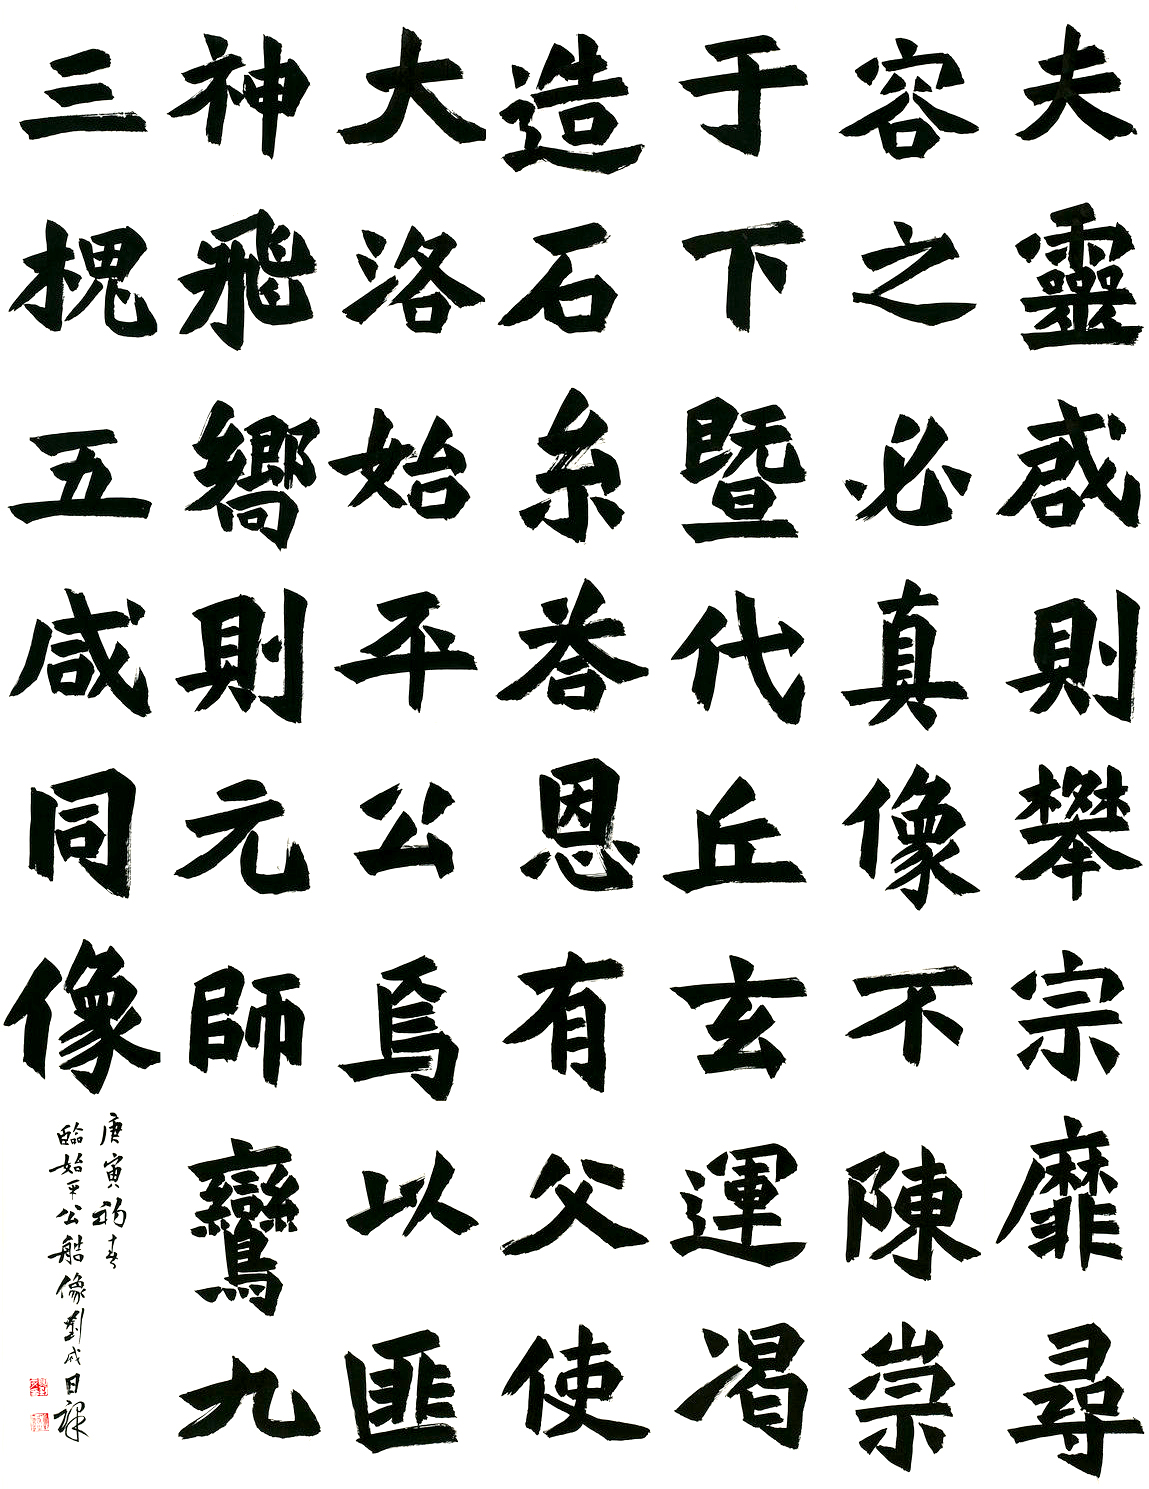 夫靈㦣則攀宗靡尋
容之必真像不陳崇
于下暨代丘玄運凔
造石糸答恩有父使
大洛始平公焉以匪
神飛嚮則元師鸞九
三槐五咸同像
庚寅初春
臨始平公造像劉成